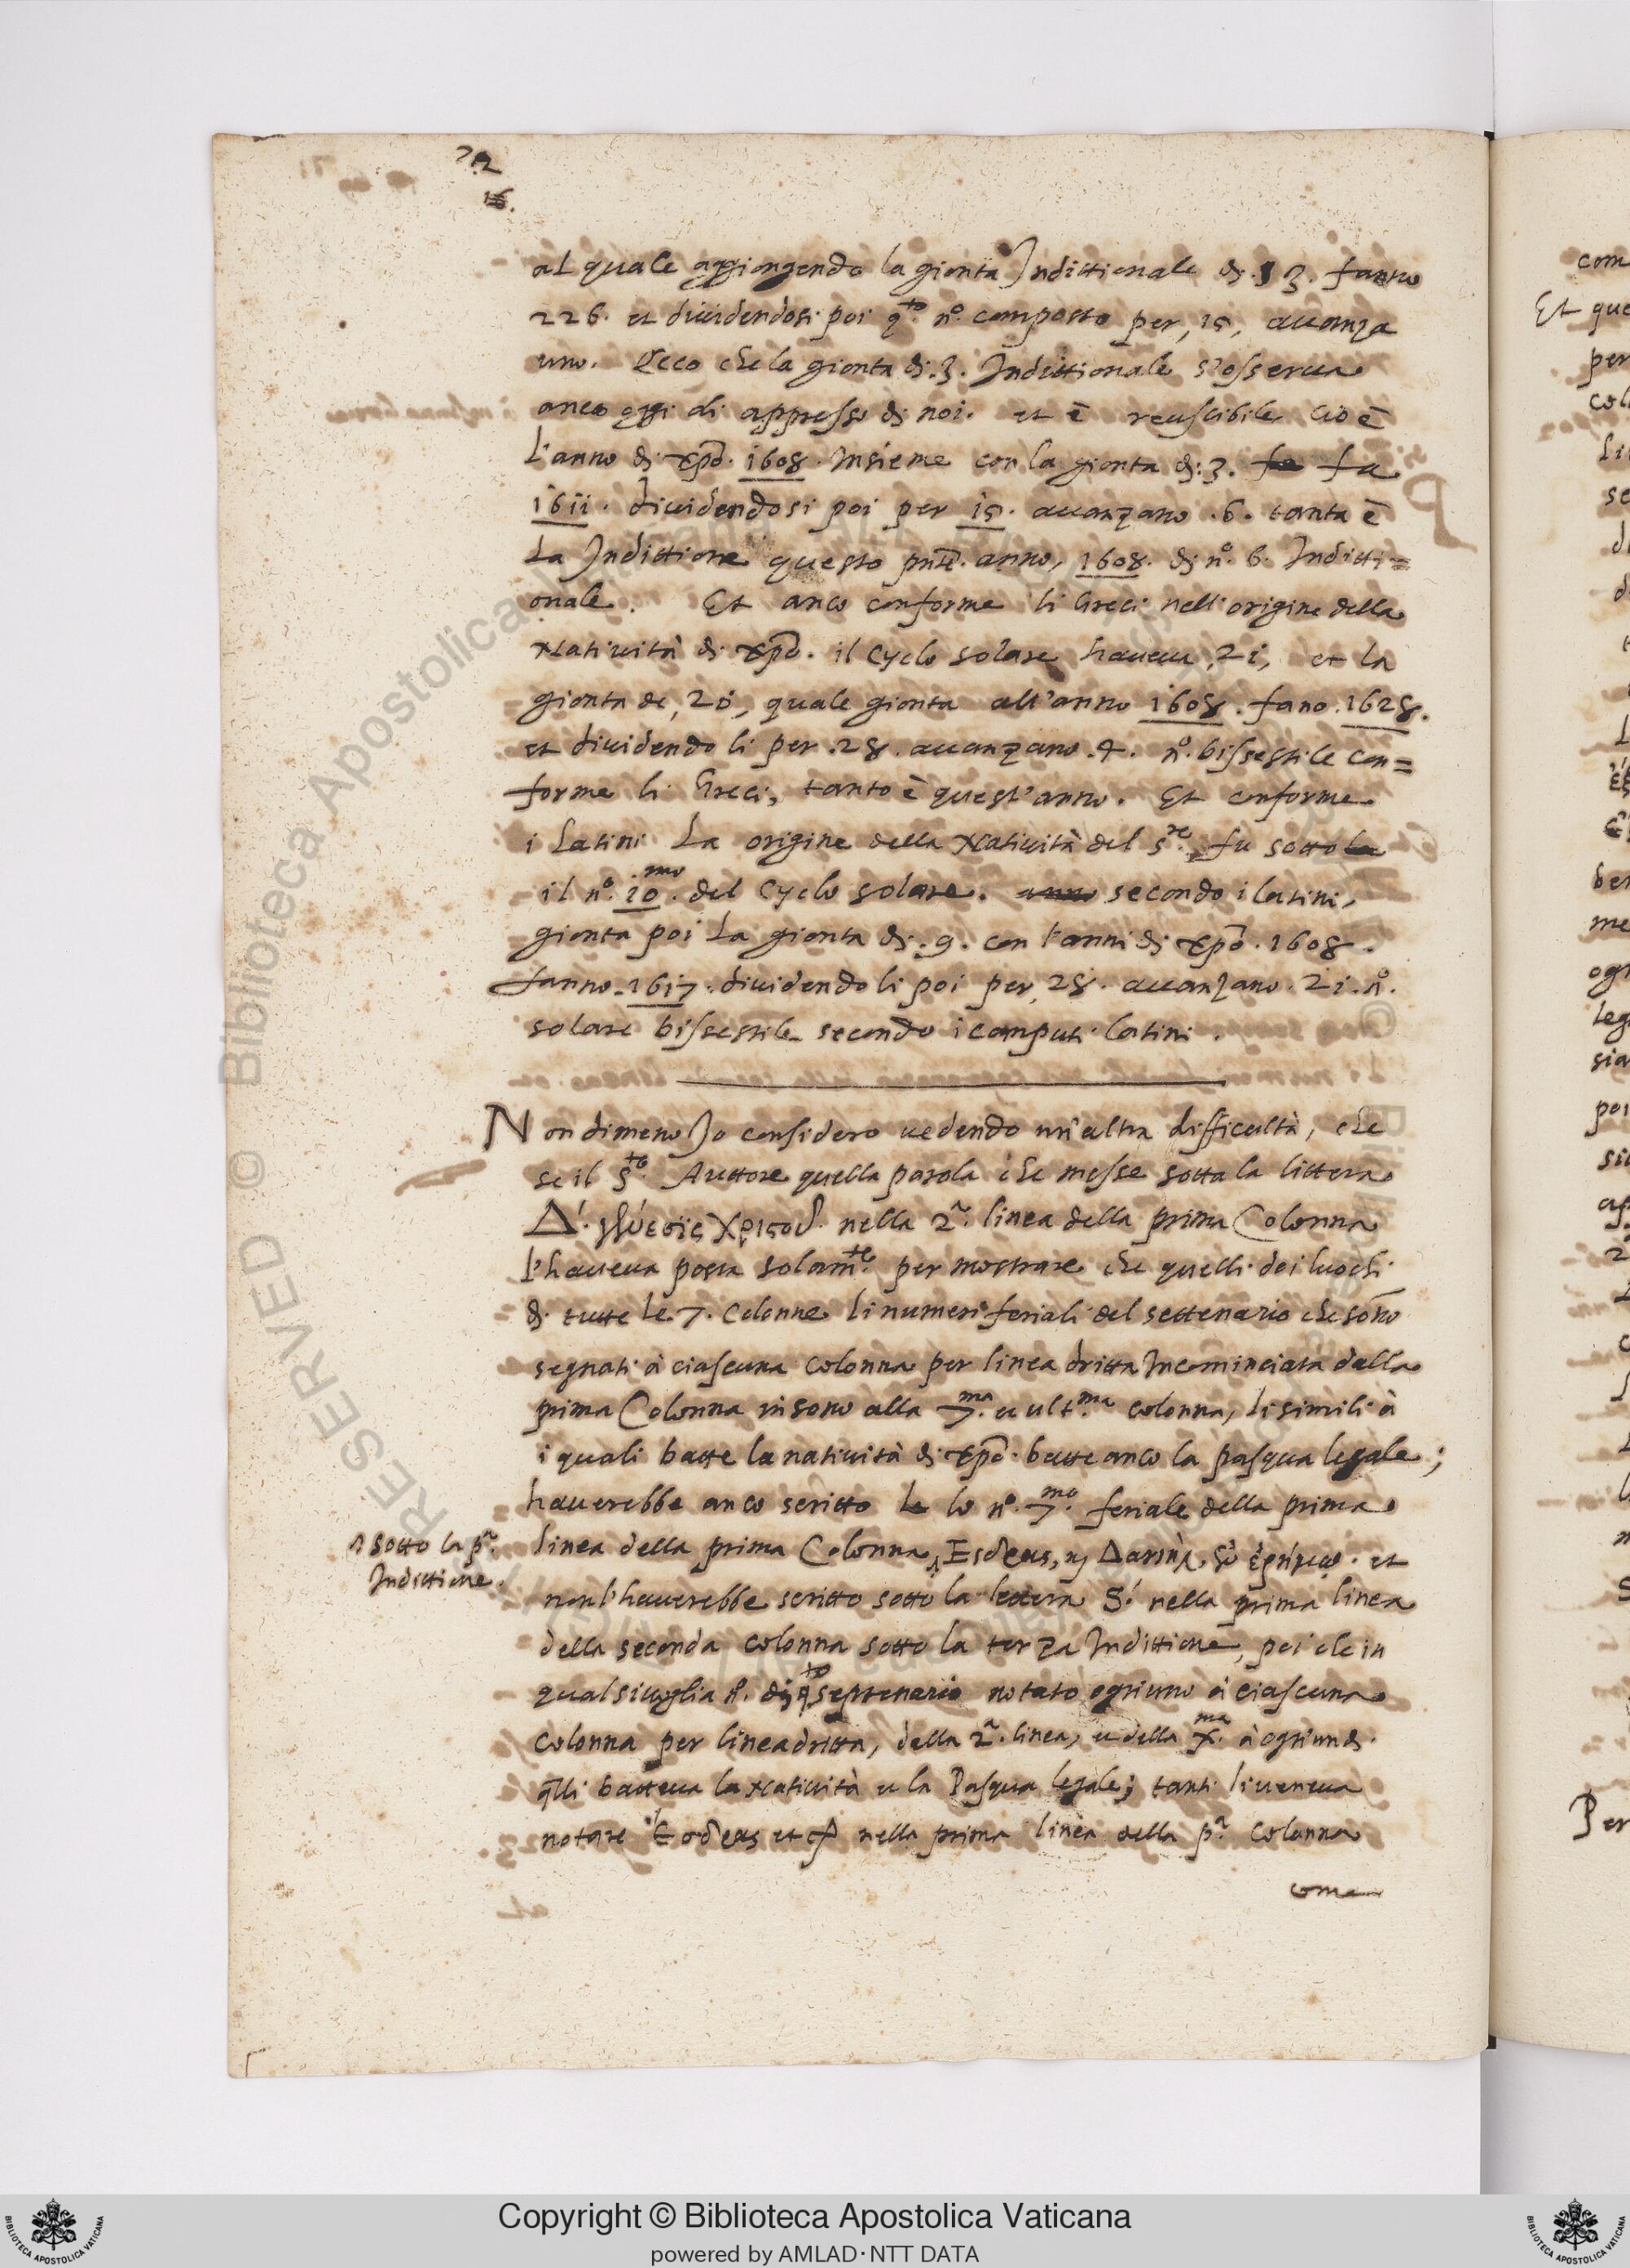 72
16.
al quale aggiongendo la gionta Indittionale di. 3. fanno
226. et dividendosi poi q.to n.o composto per, 15, avanza
uno. Ecco che la gionta di .3. Indittionale s'osserva
anco oggi di appresso di noi. et è reuscibile cio è
L'anno di xpo. 1608. Insieme con la gionta di: 3. fa
1611. dividendosi poi per 15. avanzano .6. tanta è
La Indittione questo pnte. anno, 1608. di n.o 6. Inditti=
onale. Et anco conforme li Greci nell'origine della
Natività di xpo. il Cyclo solare haveva, 21, et la
gionta de, 20, quale gionta all'anno 1608. fano. 1628.
et dividendo li per .28. avanzano .4. n.o bissestile con=
forme li Greci, tanto è quest'anno. Et conforme
i Latini La origine della Natività del S.re fu sotto la
il n.o 10.mo del Cyclo solare. anno secondo i latini,
gionta poi La gionta di .9. con l'anni di xpo. 1608.
fanno. 1617. dividendo li poi per, 28. avanzano. 21. n.o
solare bissestile secondo i computi latini.
Non dimeno Io considero vedendo un'altra difficultà, che
se il S.to Auttore quella parola che messe sotto la littera
Δ'. γέννεσις Χριστοῦ. nella 2.a linea della prima Colonna
L'haveva posta solam.te per mostrare che quelli doi luochi
di tutte le .7. Colonne li numeri feriali del settenario che sono
segnati à ciascuna colonna per linea dritta Incominciata dalla
prima Colonna insono alla 7.ma u ult.ma colonna, li simili à
i quali batte la natività di xpo. batte anco la pasqua legale;
haverebbe anco scritto le lo n.o 7.mo feriale della prima
linea della prima Colonna, Ἔσδρας, Δανιὴλ, ἐρήμῳ. et
^ sotto la p.a
Indictione.
non l'haverebbe scritto sotto la lettera S' nella prima linea
della seconda colonna sotto la terza Indittione, poi che in
qualsivoglia n.o di q.to septenario notato ogni uno à ciascuna
Colonna per linea dritta, della 2.a linea, u della X.ma à ogn'un di
q̃lli batteva la Natività u la Pasqua legale; tanti li veneva
notare Ἔσδρας et nella prima linea della p.a Colonna
come